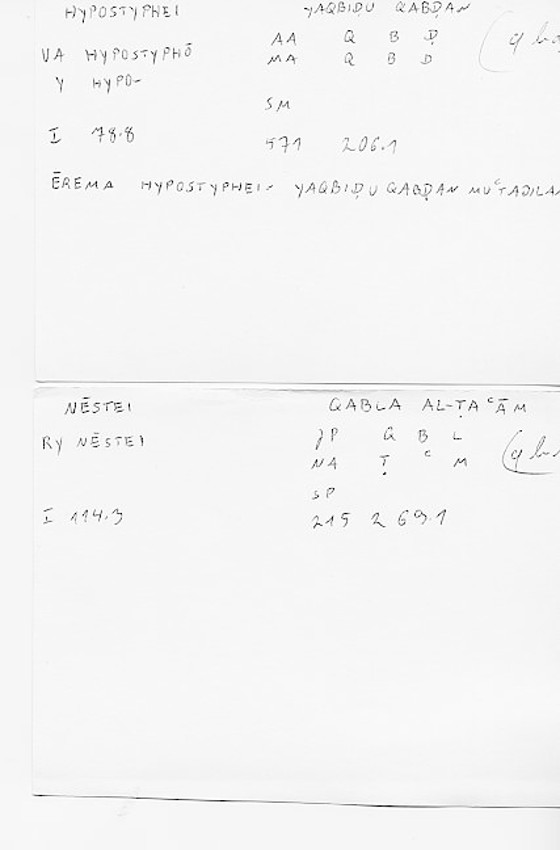 HYPOSTYPHEI YAQBIḌU QABḌAN
AA Q B Ḍ
VA HYPOSTYPHŌ MA Q B D
Y HYPO-
SM
I 78.8 571 206.1
ĒREMA HYPOSTYPHEI- YAQBIḌU QABḌAN MUʿTADILAN
NĒSTEI QABLA AL-ṬAʿĀM
RY NĒSTEI JP Q B L
NA Ṭ ʿ M
SP
I 114.3 215 269.1